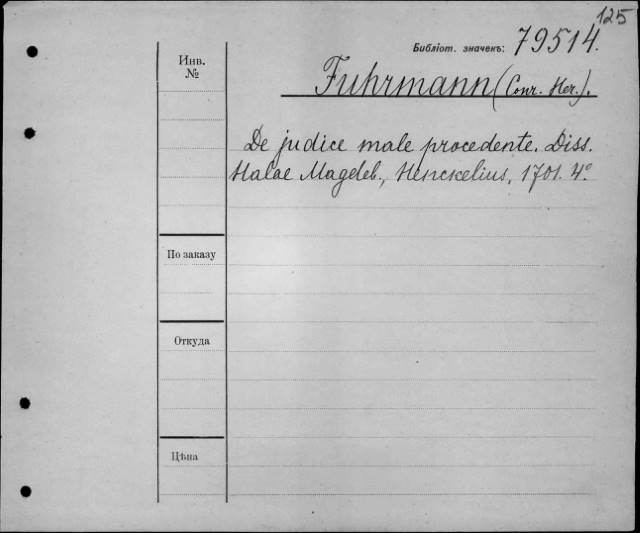 125
Библіот. значекъ: 79514.
Инв. №
Fuhrmann (Conr. Her.).
De judice male procedente. Diss.
Halae Magdeb., Henckelius, 1701. 4°
По заказу
Откуда
Цѣна